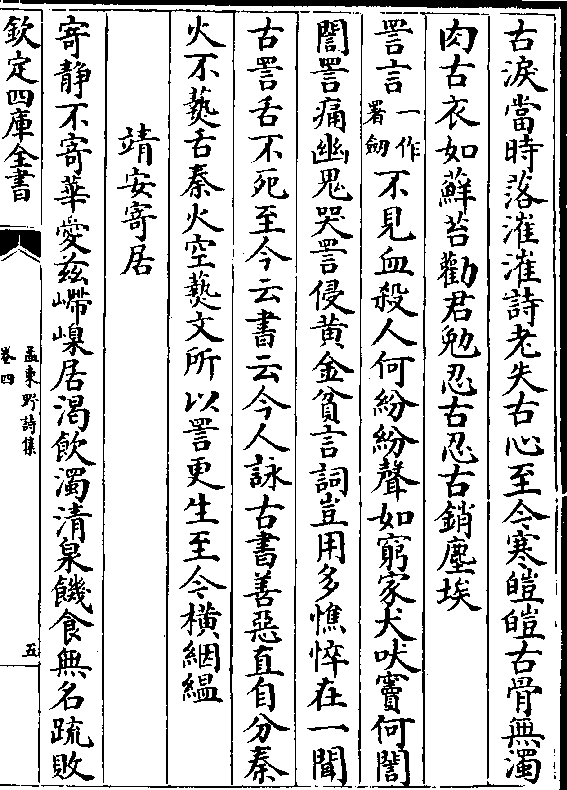 古淚當時落漼漼詩老失古心至今寒皚皚古骨無濁
肉古衣如蘚苔勸君勉忍古忍古銷塵埃
詈言一作署劒不見血殺人何紛紛聲如窮家犬吠竇何誾
誾詈痛幽鬼哭詈侵黃金貧言詞豈用多憔悴在一聞
古詈舌不死至今云書云今人詠古書善惡直自分秦
火不爇舌秦火空爇文所以詈更生至今橫絪緼
靖安寄居
寄静不寄華愛兹嵽嵲居渴飲濁清泉饑食無名疏敗
欽定四庫全書
孟東野詩集
卷四
五